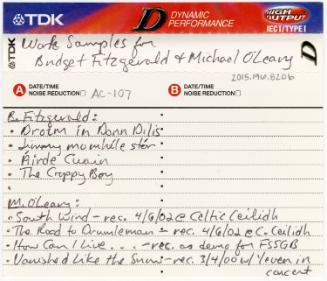 TDK D DYNAMIC PERFORMANCE HIGH OUTPUT IEC I/TYPE I
TDK Work Samples for
Budget Fitzgerald & Michael O'Leary
2015.196.8206
A DATE/TIME NOISE REDUCTION AC-107 B DATE/TIME NOISE REDUCTION
B. Fitzgerald:
• Droim in Donn Dilis
• Jimmy mo mhíle stór
• Áirde Cuain
• The Croppy Boy
M. O'Leary:
• South Wind - rec. 4/6/02 @ Celtic Ceilidh
• The Road to Drumleman - rec. 4/6/02 @ C. Ceilidh
• How Can I Live... - rec. as demo for FSSGB
• Vanished Like the Snow - rec. 3/4/00 w/ 1 even in
concert